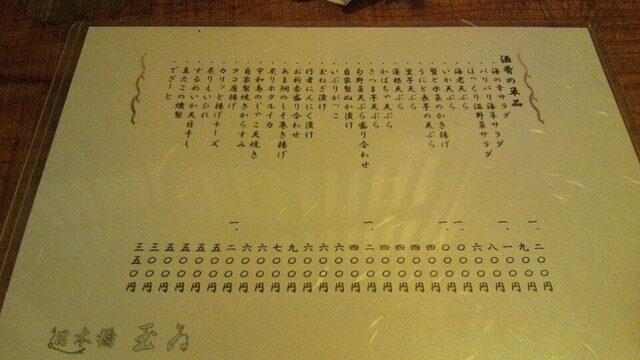 酒肴の単品
・海の幸サラダ 一、二〇〇円
・パリパリ海草サラダ 九〇〇円
・ほっくり温野菜サラダ 一、一〇〇円
・海老天ぷら 八〇〇円
・いか天ぷら 六〇〇円
・蟹と水菜のかき揚げ 一、〇〇〇円
・うにと長芋の天ぷら 一、〇〇〇円
・里芋天ぷら 四〇〇円
・蓮根天ぷら 四〇〇円
・さつま芋天ぷら 四〇〇円
・かぼちゃ天ぷら 四〇〇円
・旬野菜天ぷら盛り合わせ 一、二〇〇円
・自家製ぬか漬け 四〇〇円
・いぶりがっこ 六〇〇円
・玉ねぎ漬け 六〇〇円
・行者にんにく漬け 六〇〇円
・お新香盛り合わせ 九〇〇円
・あま鯛のしそ巻き揚げ 七〇〇円
・炙りホタルイカ 六〇〇円
・宇和島のじゃこ天焼き 六〇〇円
・自家製焼きからすみ 一、二〇〇円
・タコ唐揚げ 五〇〇円
・カリッと揚げチーズ 五〇〇円
・炙りえいひれ 五〇〇円
・するめいか天日干し 五〇〇円
・真たこの燻製 三〇〇円
・でざーと 三五〇円
日本橋 玉ゐ